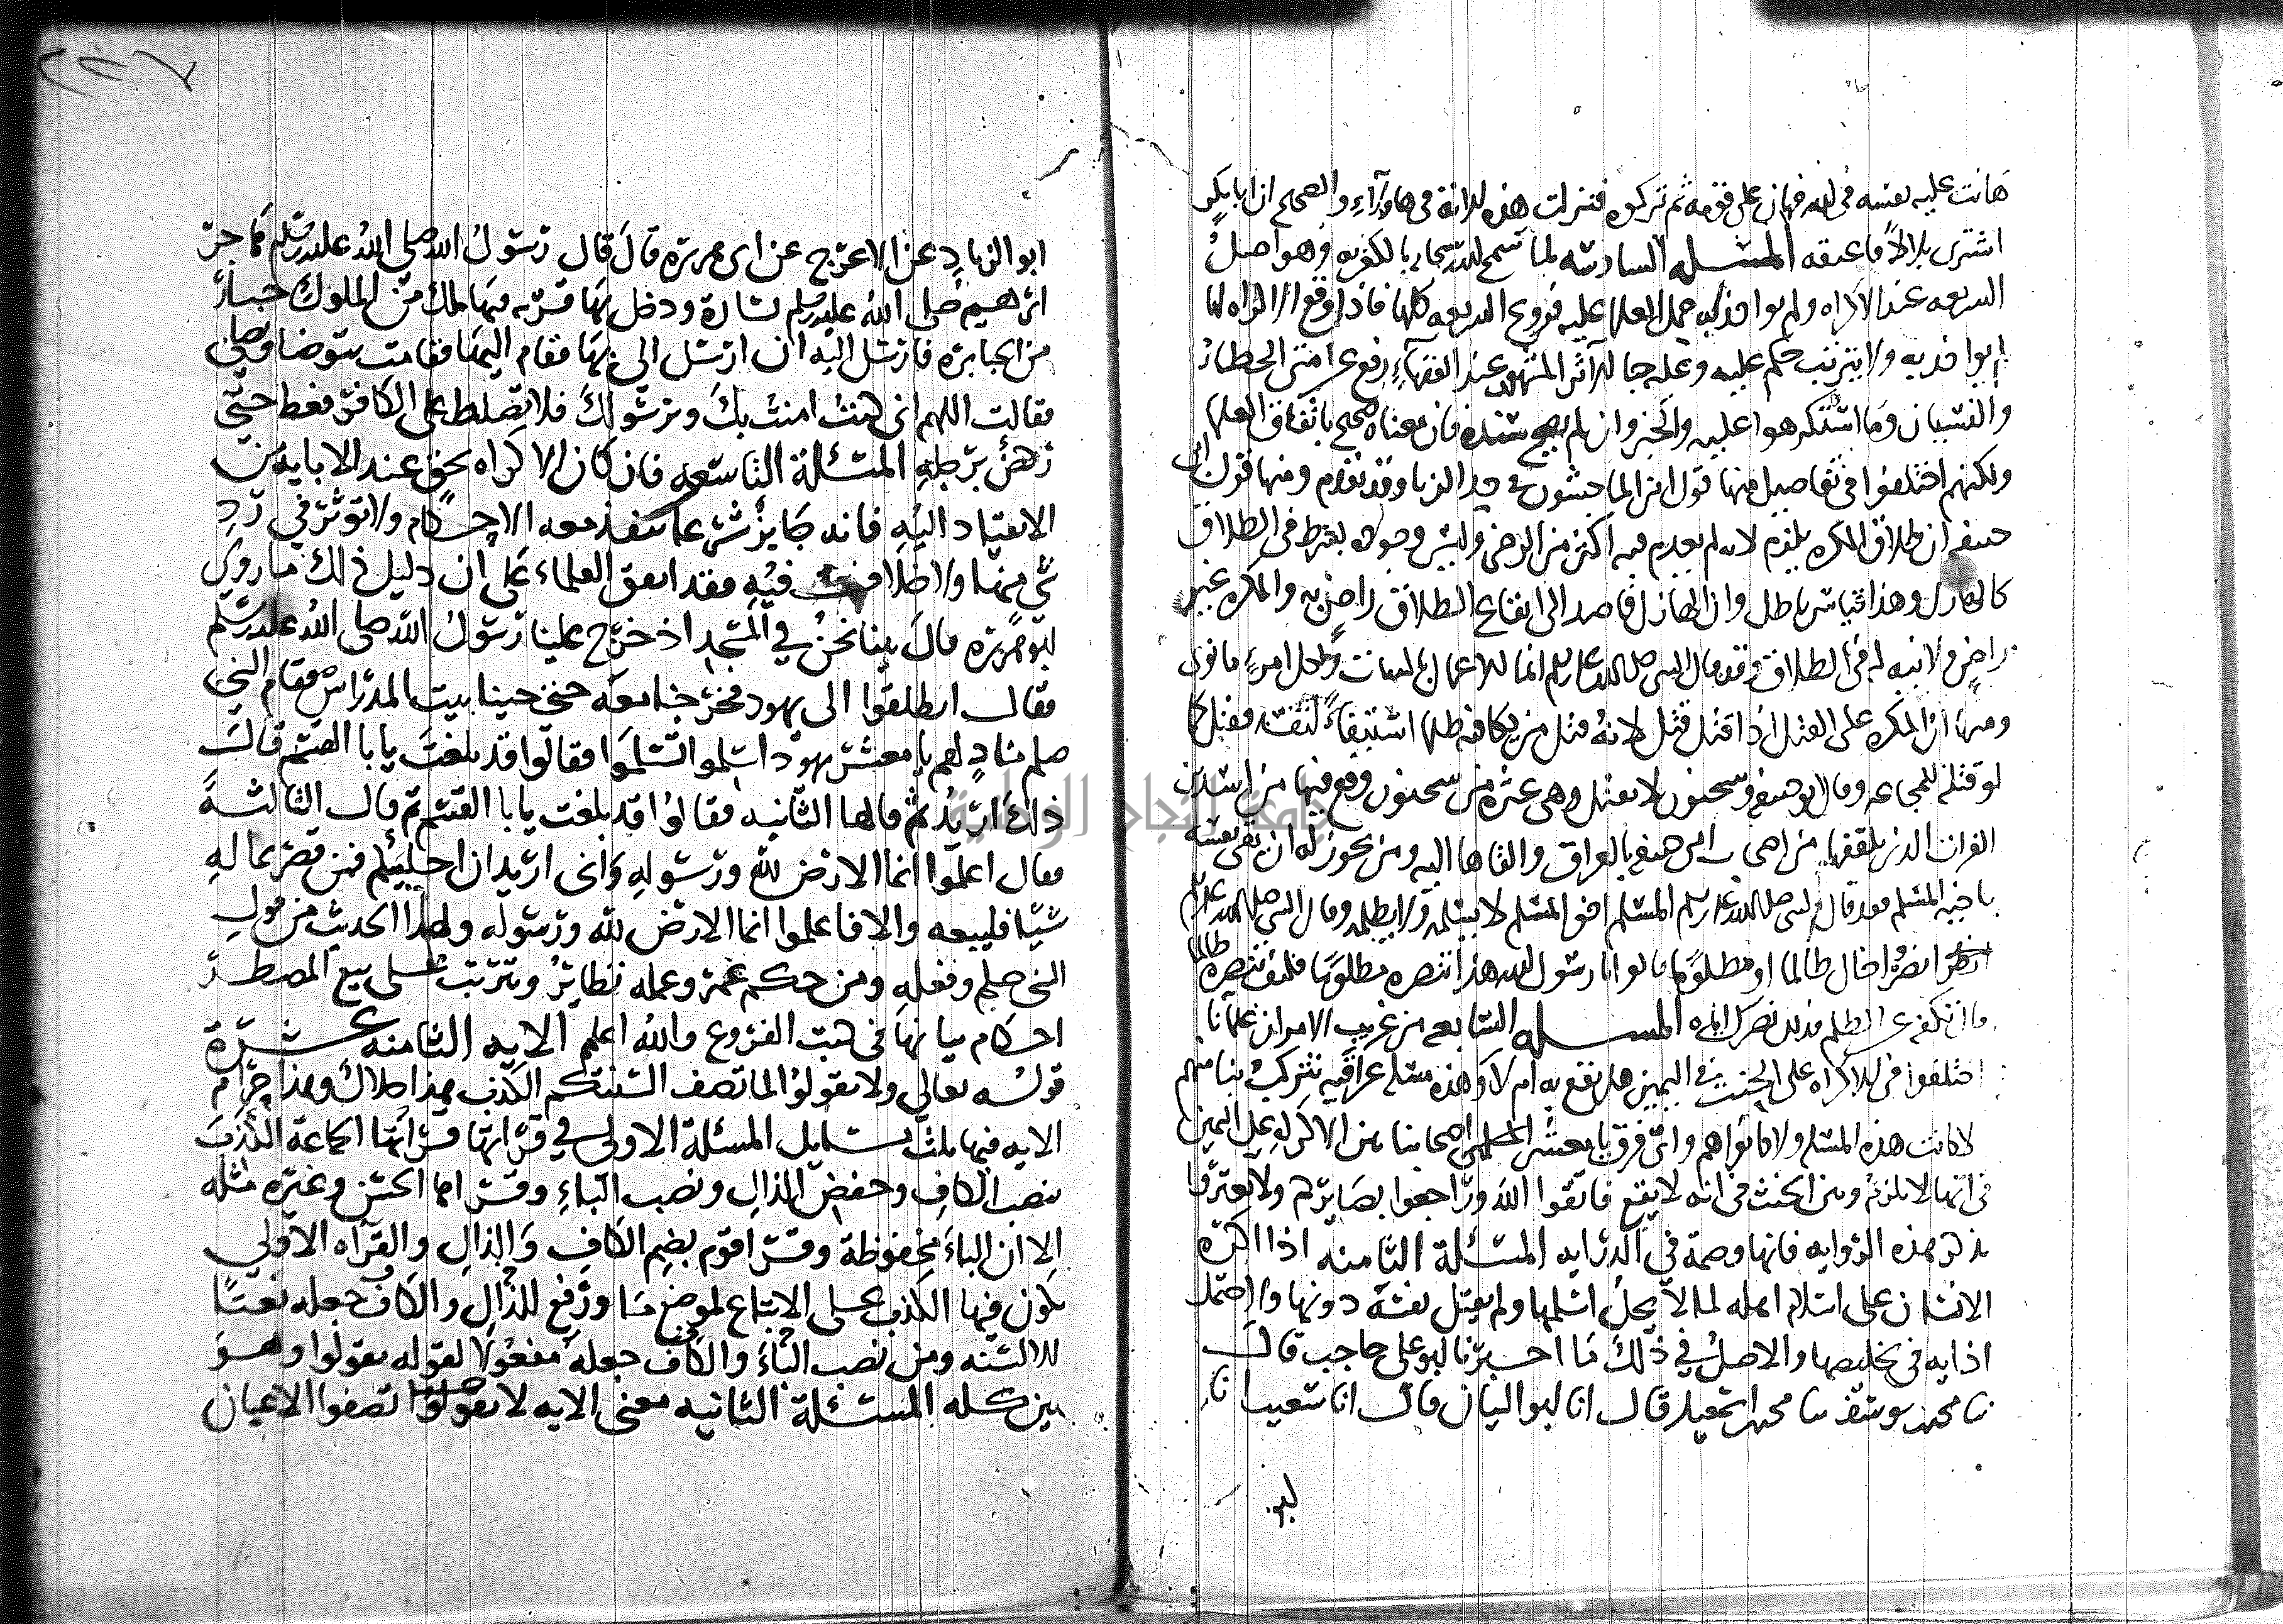 هانت عليه نفسه في الله فهان على قومه ثم تركوه فنزلت هذه الاية في هاولاء والصحيح ان ابا بكر
اشترى بلالا فاعتقه المسلة السادسة لما سمح الله سبحانه بالكفر به وهو اصل
الشريعه عند الاكراه ولم يواخذ به حمل العلما عليه فروع الشريعه كلها فاذا وقع الاكراه لها
لم يواخذ به ولا يترتب حكم عليه وعليه جا الاثر المشهور عند الفقهاء رفع عن امتي الخطا
والنسيان وما استكرهوا عليه والخبر وان لم يصح سنده فان معناه صحيح باتفاق العلما
ولكنهم اختلفوا في تفاصيل منها قول ابن الماجشون في حد الزنا وقد تقدم ومنها قول ابي
حنيفه ان طلاق المكره يلزم لانه لم يعدم فيه اكثر من الرضى وليس وجوده بشرط في الطلاق
كالهازل وهذا قياس باطل وان الهازل قاصد الى ايقاع الطلاق راض به والمكره غير
راض ولا نيه له في الطلاق وقد قال النبي صلى الله عليه وسلم انما الاعمال بالنيات ولكل امرء ما نوى
ومنها ان المكره على القتل اذا قتل قتل لانه قتل من يكافيه ظلما استبقاء لنفسه فقتل كما
لو قتله للمجاعه وقال ابو حنيفه وسحنون لا يقتل وهي عثره من سحنون وقع فيها من اسد بن
الفرات الذي تلقفها من اصحاب ابي حنيفه بالعراق والقاها اليه ومن يجوز له ان يقي نفسه
باخيه المسلم وقد قال النبي صلى الله عليه وسلم المسلم اخو المسلم لا يسلمه ولا يظلمه وقال النبي صلى الله عليه وسلم
انصر اخاك ظالما او مظلوما قالوا يا رسول الله هذا ننصره مظلوما فكيف ننصره ظالما
قال تكفه عن الظلم فذلك نصرك اياه المسله السابعه من غريب الامر ان علمانا
اختلفوا في الاكراه على الحنث في اليمين هل يقع به ام لا وهذه مسله عراقيه تركب بنا منهم
لا كانت هذه المسله ولا كانوا هم واي فرق يا معشر اصحابنا بين الاكراه على اليمين
في انها لا تلزم وبين الحنث في انه لا يقع فاتقوا الله وراجعوا بصايركم ولا تغتروا
بذكر هذه الروايه فانها وصمة في الدرايه المسئلة الثامنه اذا اكره
الانسان على اسلام اهله لما لا يحل اسلمها ولم يقتل نفسه دونها ولا احتمل
اذايه في تخليصها والاصل في ذلك ما اخبرنا ابو علي حاجب قال
نا محمد بن يوسف نا محمد بن اسمعيل قال انا ابو اليمان قال انا شعيب نا
ابو
ابو الزناد عن الاعرج عن ابي هريرة قال قال رسول الله صلى الله عليه وسلم هاجر
ابرهيم صلى الله عليه وسلم بسارة ودخل بها قريه فيها ملك من الملوك جبار
من الجبابرة فارسل اليه ان ارسل الي بها فقام اليها فقامت تتوضا وتصلي
فقالت اللهم اني كنت امنت بك وبرسولك فلا تصلط علي الكافر فغط حتى
ركض برجله المسئلة التاسعه فان كان الاكراه بحق عند الاباية من
الانقياد اليه فانه جايز شرعا تنفذ معه الاحكام ولا توثر في رد
شي منها ولا خلاف فيه فقد اتفق العلماء على ان دليل ذلك ما روى
ابو هريرة قال بينا نحن في المسجد اذ خرج علينا رسول الله صلى الله عليه وسلم
فقال انطلقوا الى يهود فخرجنا معه حتى جينا بيت المدراس فقام النبي
صلعم فناداهم يا معشر يهود اسلموا تسلموا فقالوا قد بلغت يا با القسم قال
ذلك اريد ثم قالها الثانيه فقالوا قد بلغت يا با القسم ثم قال الثالثة
فقال اعلموا انما الارض لله ورسوله واني اريد ان اجليكم فمن وجد بماله
شيا فليبعه والا فاعلموا انما الارض لله ورسوله ولهذا الحديث من قول
النبي صلعم وفعله ومن حكم عمر وعمله نظاير وترتب على بيع المضطر
احكام بيانها في كتب الفروع والله اعلم الايه الثامنه عشرة
قوله تعالى ولا تقولوا لما تصف السنتكم الكذب هذا حلال وهذا حرام
الايه فيها ثلث مسايل المسئلة الاولى في قراتها قراتها الجماعة الكذب
بنصب الكاف وخفض الذال ونصب الباء وقراها الحسن وغيره مثله
الا ان الباء مخفوظة وقرا قوم بضم الكاف والذال والقراه الاولى
يكون فيها الكذب على الاتباع لموضع ما ورفع للذال والكاف جعله نعتا
للالسنه ومن نصب الباء والكاف جعله مفعولا لقوله تقولوا وهو
بين كله المسئلة الثانيه معنى الايه لا تقولوا تصفوا الاعيان
جامعة النجاح الوطنية